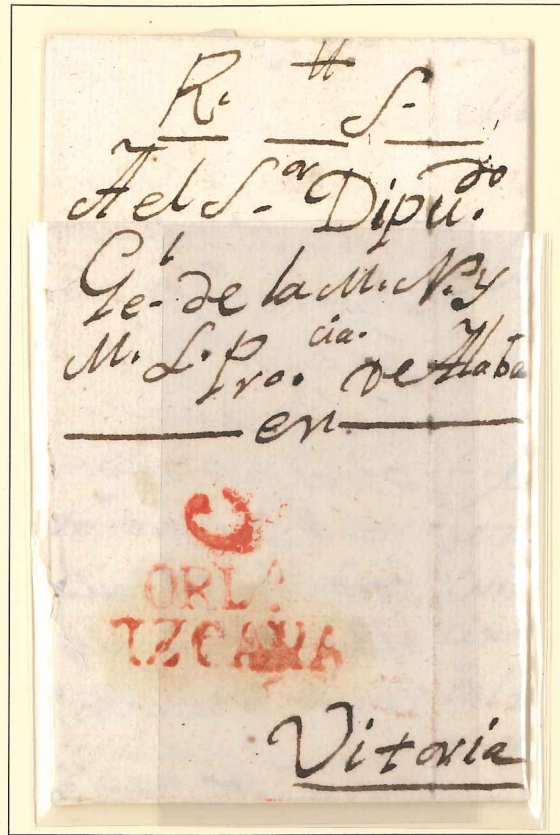 R. S.
A el S.or Dipu.do
Ge.l de la M. N. y
M. L. Pro.cia. de Alaba
en
C
ORLA
IZCAYA
Vitoria